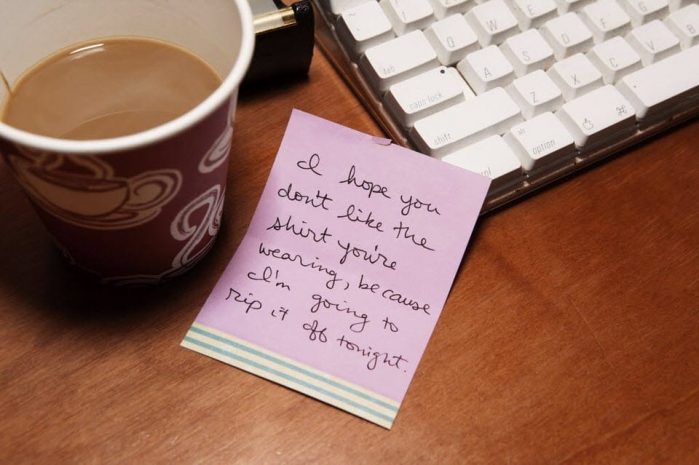 I hope you
don't like the
shirt you're
wearing, because
I'm going to
rip it off tonight.
Q W E R
A S D F
caps lock
Z X C V B
shift
alt
option
⌘